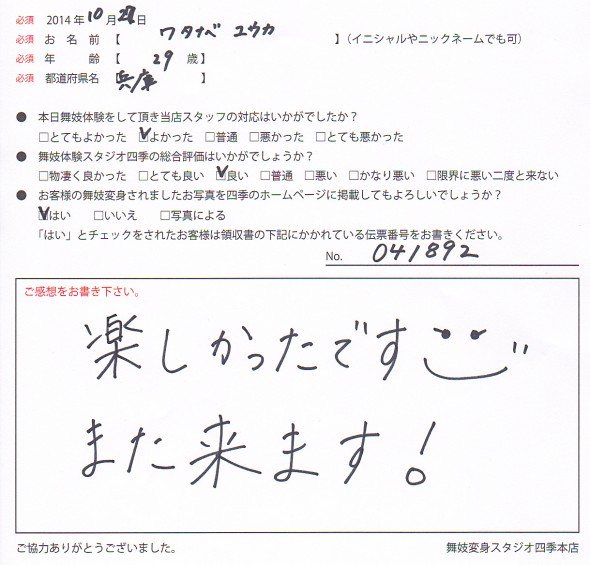 必須 2014年10月27日
必須 お 名 前 【 ワタナベ ユウカ 】(イニシャルやニックネームでも可)
必須 年 齢 【 29 歳】
必須 都道府県名 【 兵庫 】
● 本日舞妓体験をして頂き当店スタッフの対応はいかがでしたか?
□とてもよかった ☑よかった □普通 □悪かった □とても悪かった
● 舞妓体験スタジオ四季の総合評価はいかがでしょうか?
□物凄く良かった □とても良い ☑良い □普通 □悪い □かなり悪い □限界に悪い二度と来ない
● お客様の舞妓変身されましたお写真を四季のホームページに掲載してもよろしいでしょうか?
☑はい □いいえ □写真による
「はい」とチェックをされたお客様は領収書の下記にかかれている伝票番号をお書きください。
No. 041892
ご感想をお書き下さい。
楽しかったです
また来ます!
ご協力ありがとうございました。 舞妓変身スタジオ四季本店